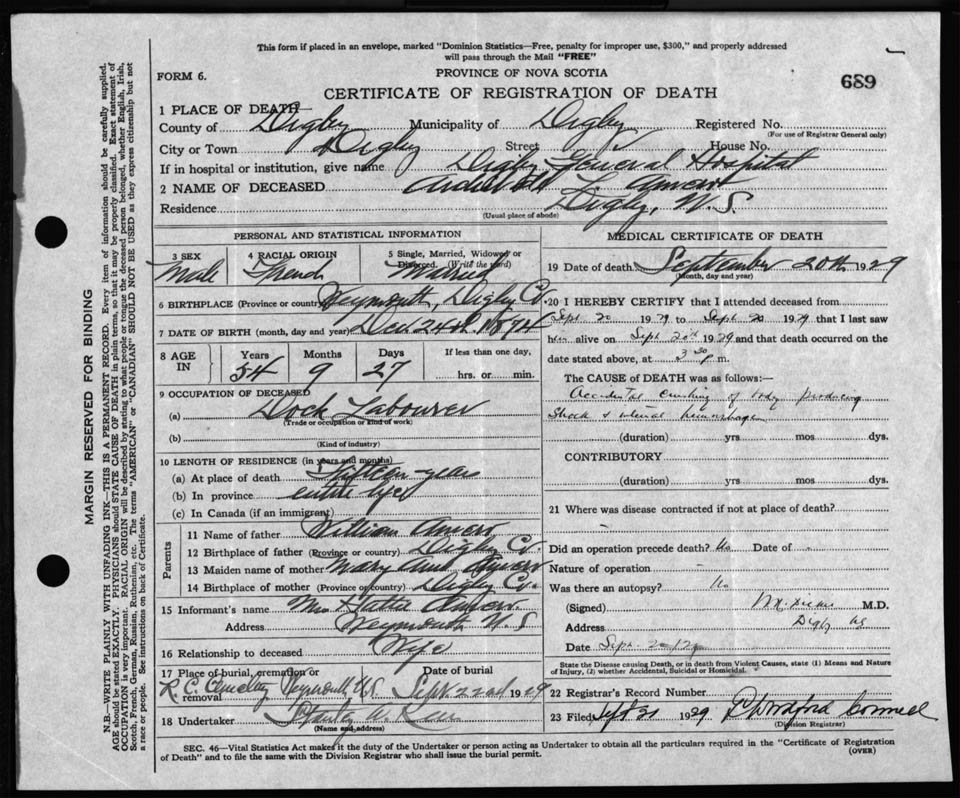 This form if placed in an envelope, marked "Dominion Statistics—Free, penalty for improper use, $300," and properly addressed
will pass through the Mail "FREE"
FORM 6.
PROVINCE OF NOVA SCOTIA
689
CERTIFICATE OF REGISTRATION OF DEATH
1 PLACE OF DEATH—
County of Digby Municipality of Digby Registered No.
(For use of Registrar General only)
City or Town Digby Street House No.
If in hospital or institution, give name Digby General Hospital
2 NAME OF DECEASED Amero
Residence Digby, N.S.
(Usual place of abode)
PERSONAL AND STATISTICAL INFORMATION
3 SEX
Male
4 RACIAL ORIGIN
French
5 Single, Married, Widowed or
Divorced. (Write the word)
Married
6 BIRTHPLACE (Province or country) Weymouth, Digby Co
7 DATE OF BIRTH (month, day and year) Dec. 24th. 1874
8 AGE IN
Years 54
Months 9
Days 27
If less than one day,
hrs. or min.
9 OCCUPATION OF DECEASED
(a) Dock Labourer
(Trade or occupation or kind of work)
(b)
(Kind of industry)
10 LENGTH OF RESIDENCE (in years and months)
(a) At place of death fifteen years
(b) In province entire life
(c) In Canada (if an immigrant)
Parents
11 Name of father William Amero
12 Birthplace of father (Province or country) Digby Co.
13 Maiden name of mother Mary Ann
14 Birthplace of mother (Province or country) Digby Co.
15 Informant's name Mrs Hattie Amero.
Address Weymouth N.S
16 Relationship to deceased Wife
17 Place of burial, cremation or
removal
R.C. Cemetery Weymouth N.S.
Date of burial
Sept 22nd 1929
18 Undertaker Stanley W.
(Name and address)
MEDICAL CERTIFICATE OF DEATH
19 Date of death September 20th 1929
(Month, day and year)
20 I HEREBY CERTIFY that I attended deceased from
Sept. 20 1929 to Sept. 20 1929 that I last saw
him alive on Sept 20th 1929 and that death occurred on the
date stated above, at 3 30 p.m.
The CAUSE OF DEATH was as follows:
Accidental crushing of body producing
shock & internal hemorrhage
(duration) yrs mos dys.
CONTRIBUTORY
(duration) yrs mos dys.
21 Where was disease contracted if not at place of death?
Did an operation precede death? No Date of
Nature of operation
Was there an autopsy? No
(Signed) M.D.
Address Digby NS
Date Sept 20/29
State the Disease causing Death, or in death from Violent Causes, state (1) Means and Nature
of Injury, (2) whether Accidental, Suicidal or Homicidal.
22 Registrar's Record Number
23 Filed Sept 21 1929
(Division Registrar)
SEC. 46—Vital Statistics Act makes it the duty of the Undertaker or person acting as Undertaker to obtain all the particulars required in the "Certificate of Registration
of Death" and to file the same with the Division Registrar who shall issue the burial permit.
(OVER)
MARGIN RESERVED FOR BINDING
N.B.—WRITE PLAINLY WITH UNFADING INK—THIS IS A PERMANENT RECORD. Every item of information should be carefully supplied.
AGE should be stated EXACTLY. PHYSICIANS should STATE CAUSE OF DEATH in plain terms, so that it may be properly classified. Exact statement of
OCCUPATION is very important. RACIAL ORIGIN will be described by stating to what people or tongue the deceased person belonged, whether English, Irish,
Scotch, French, German, Russian, Ruthenian, etc. The terms "AMERICAN" or "CANADIAN" SHOULD NOT BE USED as they express citizenship but not
a race or people. See instructions on back of Certificate.